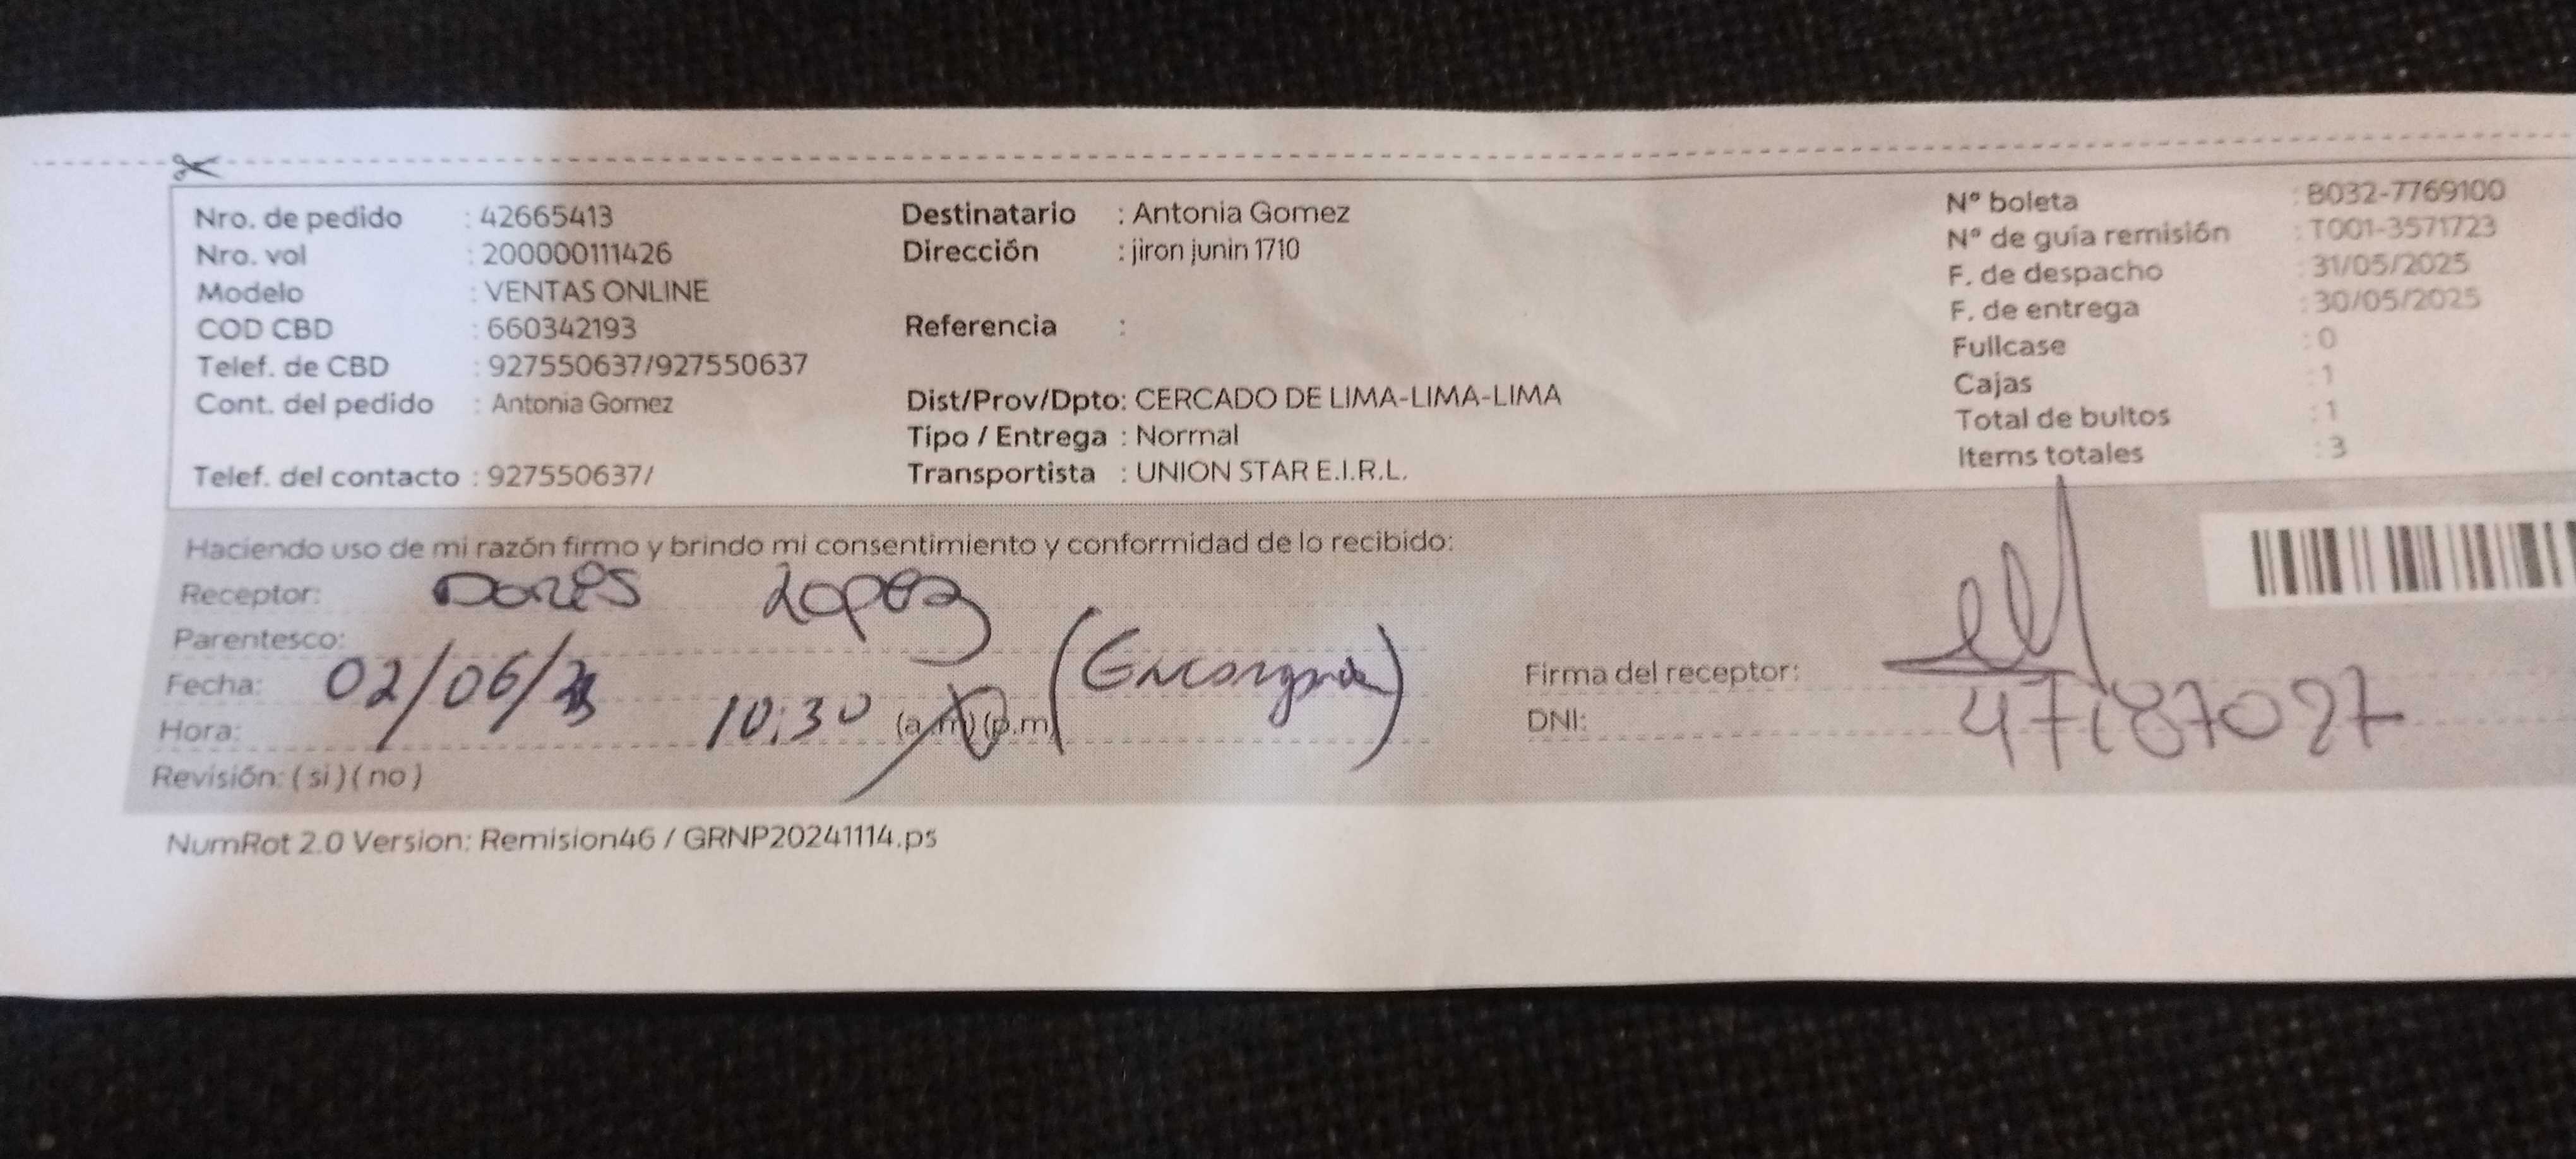 Nro. de pedido : 42665413
Nro. vol : 200000111426
Modelo : VENTAS ONLINE
COD CBD : 660342193
Telef. de CBD : 927550637/927550637
Cont. del pedido : Antonia Gomez
Telef. del contacto : 927550637/
Destinatario : Antonia Gomez
Dirección : jiron junin 1710
Referencia :
Dist/Prov/Dpto: CERCADO DE LIMA-LIMA-LIMA
Tipo / Entrega : Normal
Transportista : UNION STAR E.I.R.L.
N° boleta : B032-7769100
N° de guía remisión : T001-3571723
F. de despacho : 31/05/2025
F. de entrega : 30/05/2025
Fullcase : 0
Cajas : 1
Total de bultos : 1
Items totales : 3
Haciendo uso de mi razón firmo y brindo mi consentimiento y conformidad de lo recibido:
Receptor: Doris Lopez
Parentesco: (Encargada)
Fecha: 02/06/
Hora: 10:30 (a.m) (p.m)
Revisión: (si) (no)
Firma del receptor:
DNI: 47187027
NumRot 2.0 Version: Remision46 / GRNP20241114.ps